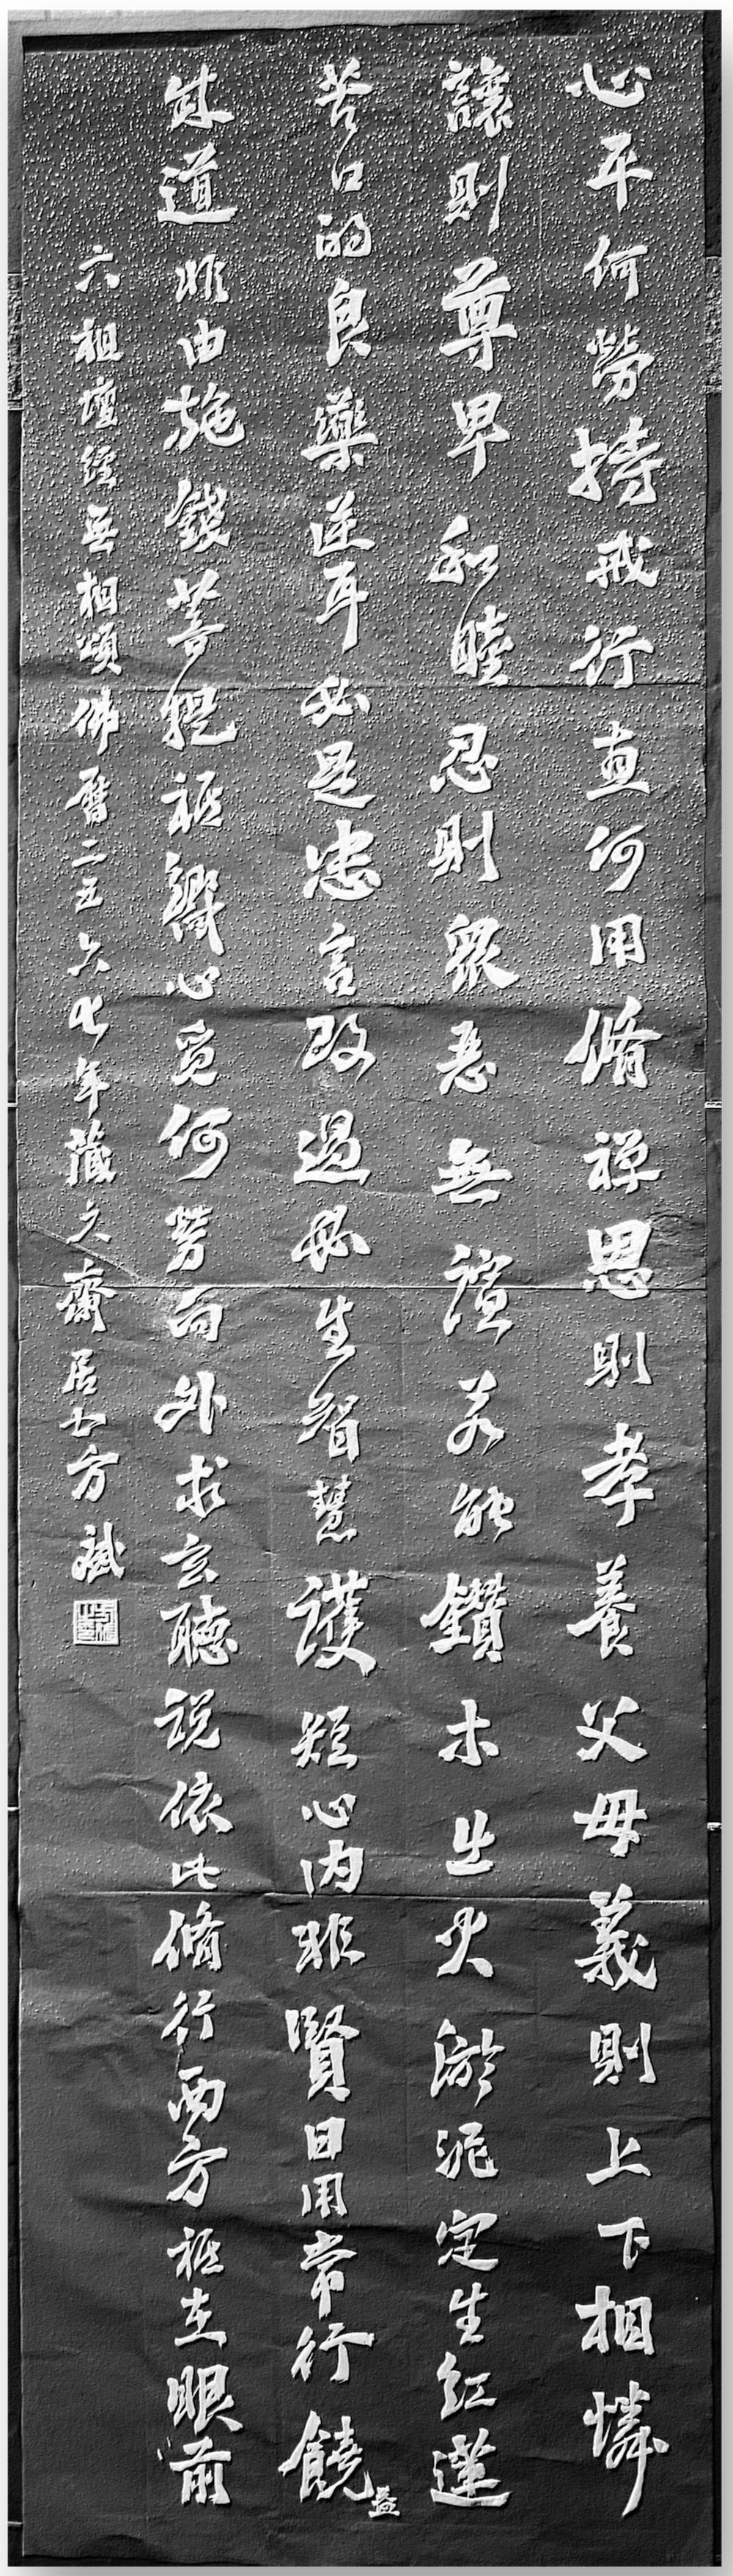 心平何勞持戒行直何用脩禪恩則孝養父母義則上下相憐
讓則尊卑和睦忍則衆惡無諠若能鑽木出火淤泥定生紅蓮
苦口的良藥逆耳必是忠言改過必生智慧護短心內非賢日用常行饒益
成道非由施錢菩提祇嚮心覓何勞向外求玄聽説依此脩行西方祇在眼前
六祖壇經無相頌佛曆二五六七年藏久齋居士方斌